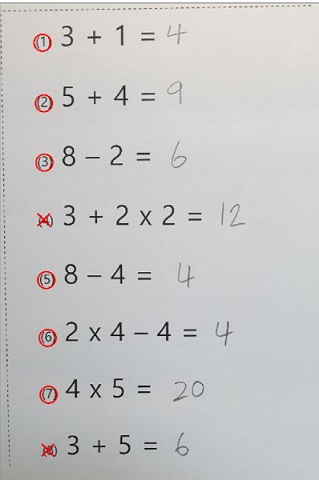 (1) 3 + 1 = 4
(2) 5 + 4 = 9
(3) 8 – 2 = 6
(4) 3 + 2 x 2 = 12
(5) 8 – 4 = 4
(6) 2 x 4 – 4 = 4
(7) 4 x 5 = 20
(8) 3 + 5 = 6